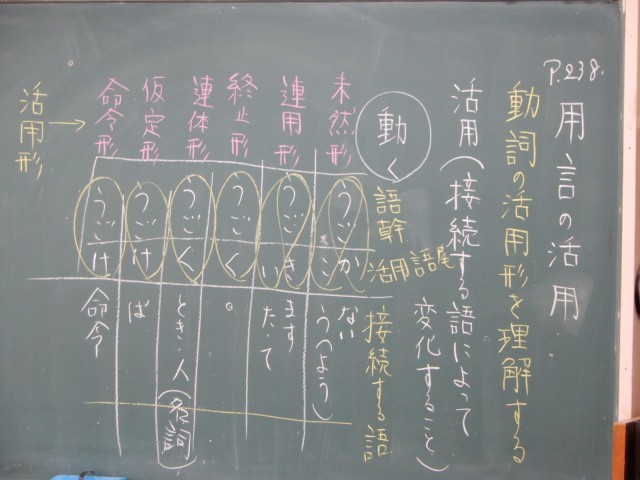 P.238.
用言の活用
動詞の活用形を理解する
活用(接続する語によって
変化すること)
動く
語幹
活用語尾
接続する語
未然形
うご
か
こ
ない
う(よう)
連用形
うご
き
い
ます
た・て
終止形
うご
く
。
連体形
うご
く
とき・人(名詞)
仮定形
うご
け
ば
命令形
うご
け
命令
活用形→